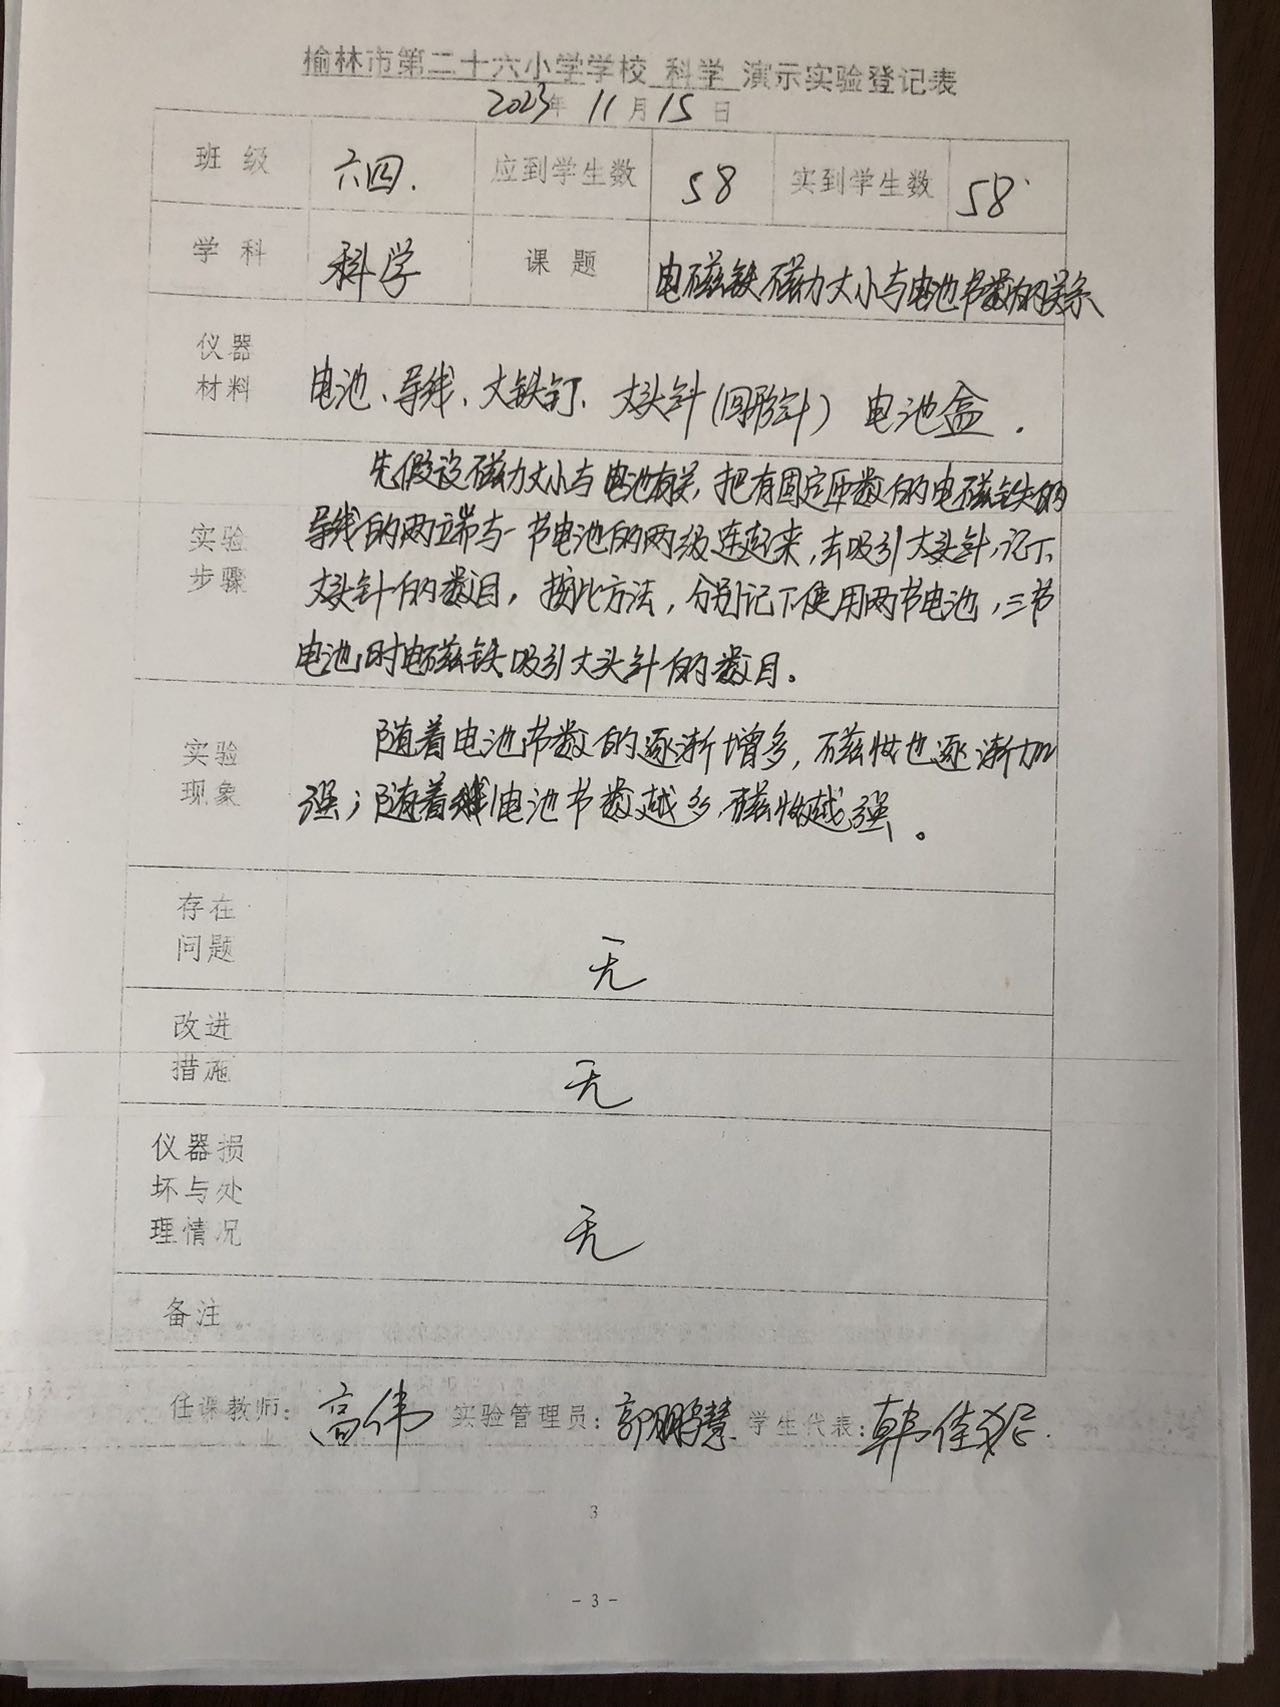 榆林市第二十六小学学校 科学 演示实验登记表
2023年 11月15日
班 级 六四. 应到学生数 58 实到学生数 58
学 科 科学 课 题 电磁铁磁力大小与电池节数的关系
仪器
材料
电池、导线、大铁钉、大头针(回形针) 电池盒.
实验
步骤
先假设磁力大小与电池有关,把有固定匝数的电磁铁的
导线的两端与一节电池的两级连起来,去吸引大头针,记下
大头针的数目,按此方法,分别记下使用两节电池,三节
电池时电磁铁吸引大头针的数目。
实验
现象
随着电池节数的逐渐增多,磁性也逐渐加
强;随着电池节数越多,磁性越强。
存在
问题
无
改进
措施
无
仪器损
坏与处
理情况
无
备注
任课教师: 高伟 实验管理员: 郭鹏慧 学生代表: 韩佳
3
- 3 -